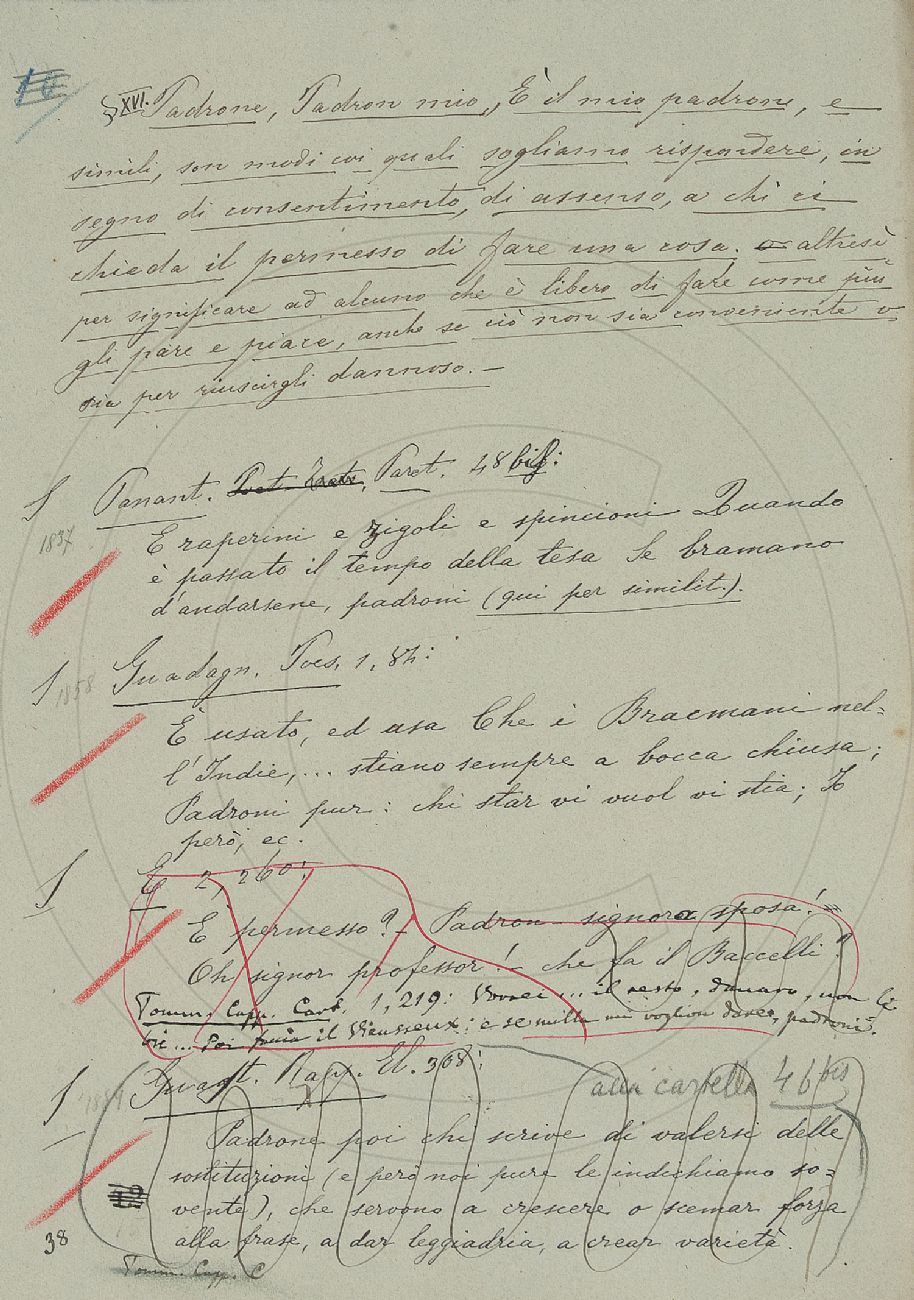 § XVI. Padrone, Padron mio, È il mio padrone, e
simili, son modi coi quali sogliamo rispondere, in
segno di consentimento, di assenso, a chi ci
chieda il permesso di fare una cosa. altresì
per significare ad alcuno che è libero di fare come più
gli pare e piace, anche se ciò non sia conveniente o
sia per riuscirgli dannoso. —
Panant. Paret. 48 bis:
1837
E raperini e zigoli e spincioni Quando
è passato il tempo della tesa Se bramano
d'andarsene, padroni (qui per similit.).
Guadagn. Poes. 1, 87:
1858
È usato, ed usa Che i Bracmani nel-
l'Indie, ... stiano sempre a bocca chiusa;
Padroni pur: chi star vi vuol vi stia; Io
però, ec.
E 2, 260:
È permesso? – Padron signora sposa! –
Oh signor professor! – che fa il Baccelli?
Tomm. Capp. Cart. 1, 219: Vorrei ... il resto, danaro, non li-
bri ... Poi il Vieusseux: e se mille me voglion dare, padroni.
Rapp. El. 308:
alla cartella 46 bis
Padrone poi chi scrive di valersi delle
sostituzioni (e però noi pure le indichiamo so-
vente), che servono a crescere o scemar forza
alla frase, a dar leggiadria, a crear varietà.
38
Tomm. Capp. C